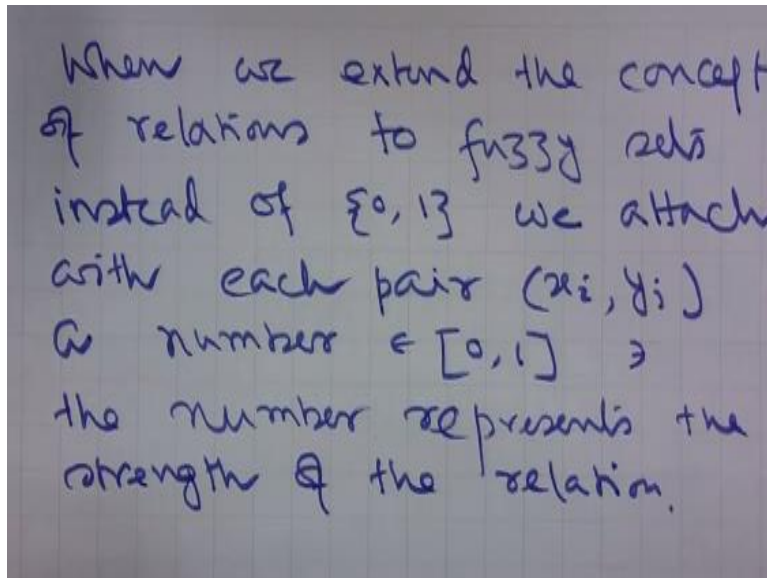 When we extend the concept
of relations to fuzzy sets
instead of {0, 1} we attach
with each pair (xi, yj)
a number ∈ [0, 1] ∋
the number represents the
strength of the relation.